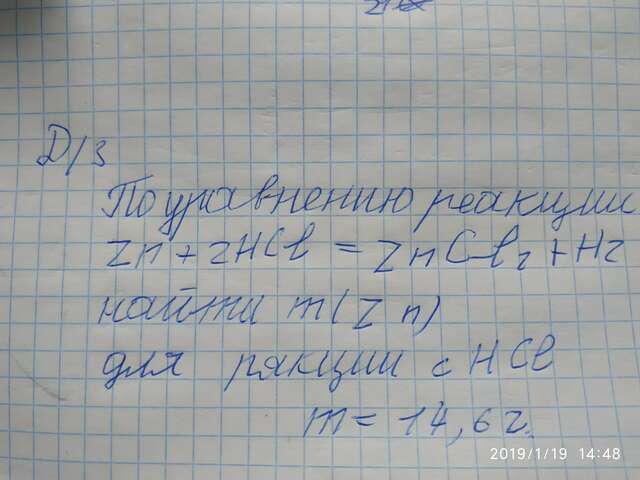 Д/з
По уравнению реакции
Zn + 2HCl = ZnCl2 + H2
найти m(Zn)
для ракции с HCl
m = 14,6 г.
2019/1/19 14:48